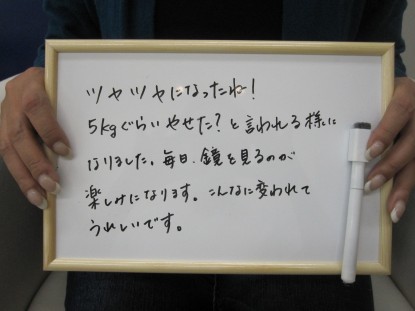 ツヤツヤになったね!
5kgぐらいやせた?と言われる様に
なりました。毎日、鏡を見るのが
楽しみになります。こんなに変われて
うれしいです。